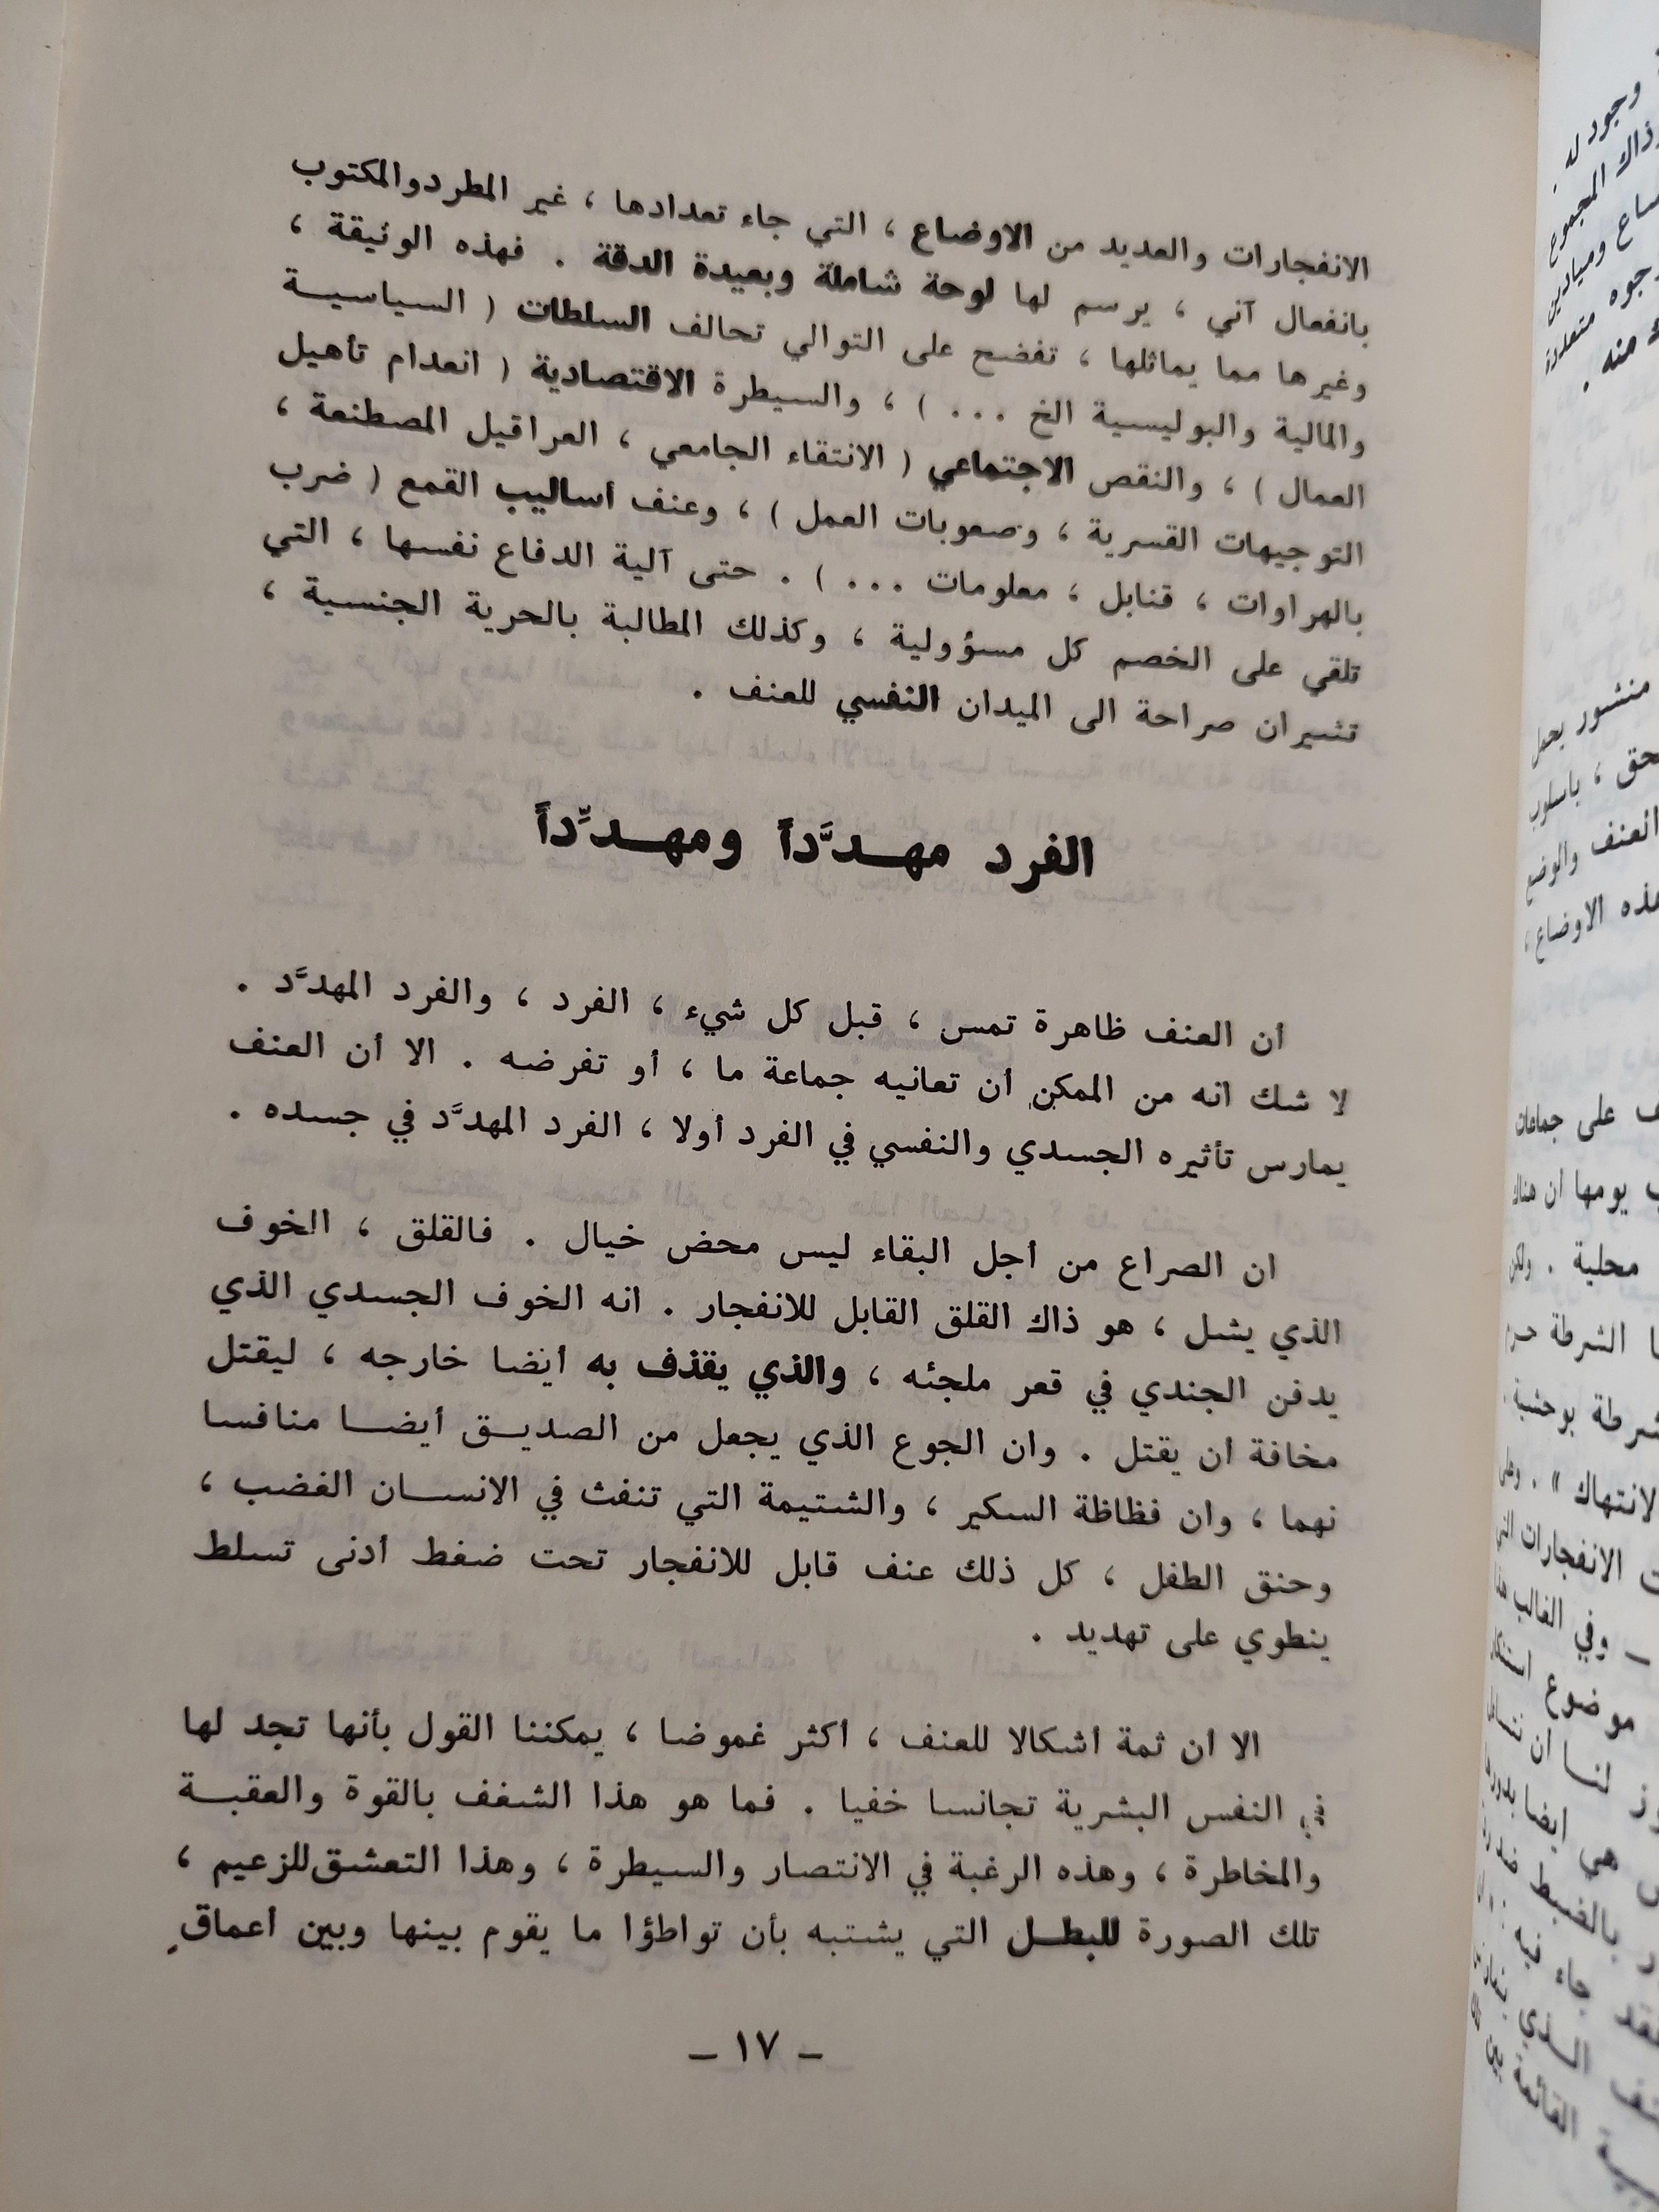 الانفجارات والعديد من الاوضاع ، التي جاء تعدادها ، غير المطرد والمكتوب
بانفعال آني ، يرسم لها لوحة شاملة وبعيدة الدقة . فهذه الوثيقة ،
وغيرها مما يماثلها ، تفضح على التوالي تحالف السلطات ( السياسية
والمالية والبوليسية الخ ... ) ، والسيطرة الاقتصادية ( انعدام تأهيل
العمال ) ، والنقص الاجتماعي ( الانتقاء الجامعي ، العراقيل المصطنعة ،
التوجيهات القسرية ، وصعوبات العمل ) ، وعنف أساليب القمع ( ضرب
بالهراوات ، قنابل ، معلومات ... ) . حتى آلية الدفاع نفسها ، التي
تلقي على الخصم كل مسؤولية ، وكذلك المطالبة بالحرية الجنسية ،
تشيران صراحة الى الميدان النفسي للعنف .
الفرد مهـدَّداً ومهـدِّداً
أن العنف ظاهرة تمس ، قبل كل شيء ، الفرد ، والفرد المهدَّد .
لا شك انه من الممكن أن تعانيه جماعة ما ، أو تفرضه . الا أن العنف
يمارس تأثيره الجسدي والنفسي في الفرد أولا ، الفرد المهدَّد في جسده .
ان الصراع من أجل البقاء ليس محض خيال . فالقلق ، الخوف
الذي يشل ، هو ذاك القلق القابل للانفجار . انه الخوف الجسدي الذي
يدفن الجندي في قعر ملجئه ، والذي يقذف به أيضا خارجه ، ليقتل
مخافة ان يقتل . وان الجوع الذي يجعل من الصديـق أيضـا منافسا
نهما ، وان فظاظة السكير ، والشتيمة التي تنفث في الانسـان الغضب ،
وحنق الطفل ، كل ذلك عنف قابل للانفجار تحت ضغط أدنى تسلط
ينطوي على تهديد .
الا ان ثمة أشكالا للعنف ، أكثر غموضا ، يمكننا القول بأنها تجد لها
في النفس البشرية تجانسا خفيا . فما هو هذا الشغف بالقوة والعقبـة
والمخاطرة ، وهذه الرغبة في الانتصار والسيطرة ، وهذا التعشق للزعيم ،
تلك الصورة للبطـل التي يشتبه بأن تواطؤا ما يقوم بينها وبين أعماق
ـ ١٧ ـ
وجود له .
وذاك المجموع
وميادين
وجوه متعددة
منه .
منشور يحمل
، باسلوب
العنف والوضع
هذه الاوضاع ،
على جماعات
يومها ان هناك
محلية . ولكن
الشرطة حرم
بوحشية .
الانتهاك » . وعلى
الانفجارات التي
ـ وفي الغالب
موضوع
لنـا ان
هي أيضا
بالضبط
جاء فيه
الـذي
القائمة بين